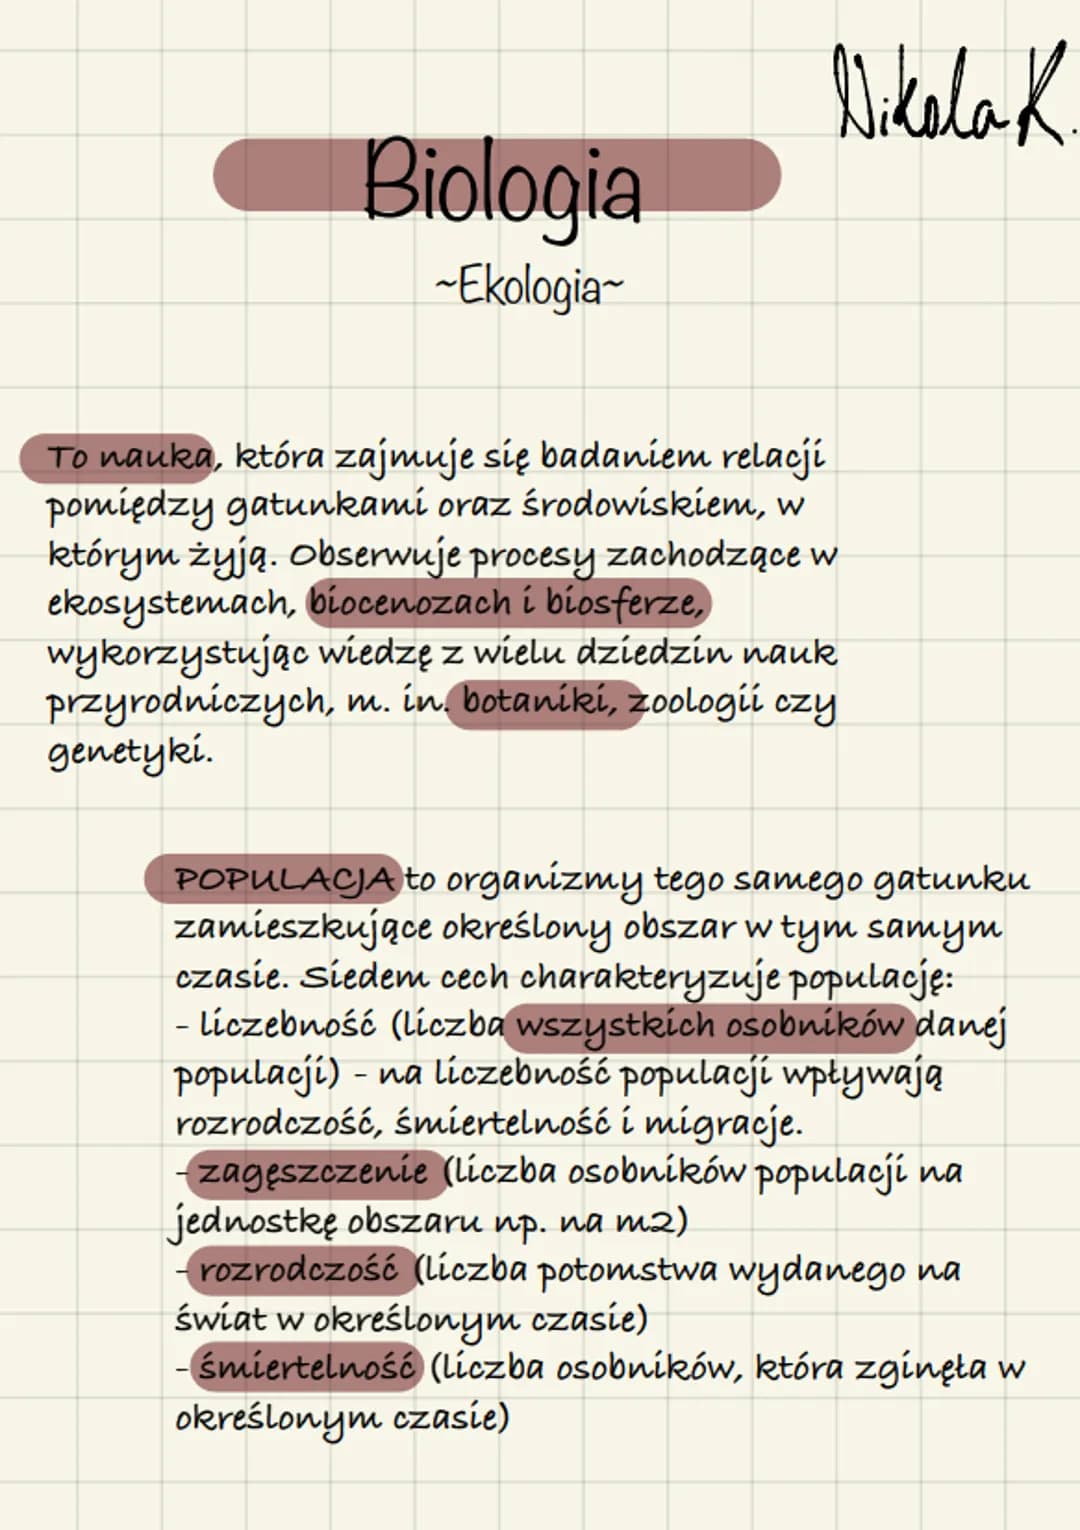 Nikola K.
Biologia
~Ekologia~
To nauka, która zajmuje się badaniem relacji
pomiędzy gatunkami oraz środowiskiem, w
którym żyją. Obserwuje procesy zachodzące w
ekosystemach, biocenozach i biosferze,
wykorzystując wiedzę z wielu dziedzin nauk
przyrodniczych, m. in. botaniki, zoologii czy
genetyki.
POPULACJA to organizmy tego samego gatunku
zamieszkujące określony obszar w tym samym
czasie. Siedem cech charakteryzuje populację:
- liczebność (liczba wszystkich osobników danej
populacji) - na liczebność populacji wpływają
rozrodczość, śmiertelność i migracje.
- zagęszczenie (liczba osobników populacji na
jednostkę obszaru np. na m2)
- rozrodczość (liczba potomstwa wydanego na
świat w określonym czasie)
- śmiertelność (liczba osobników, która zginęła w
określonym czasie)